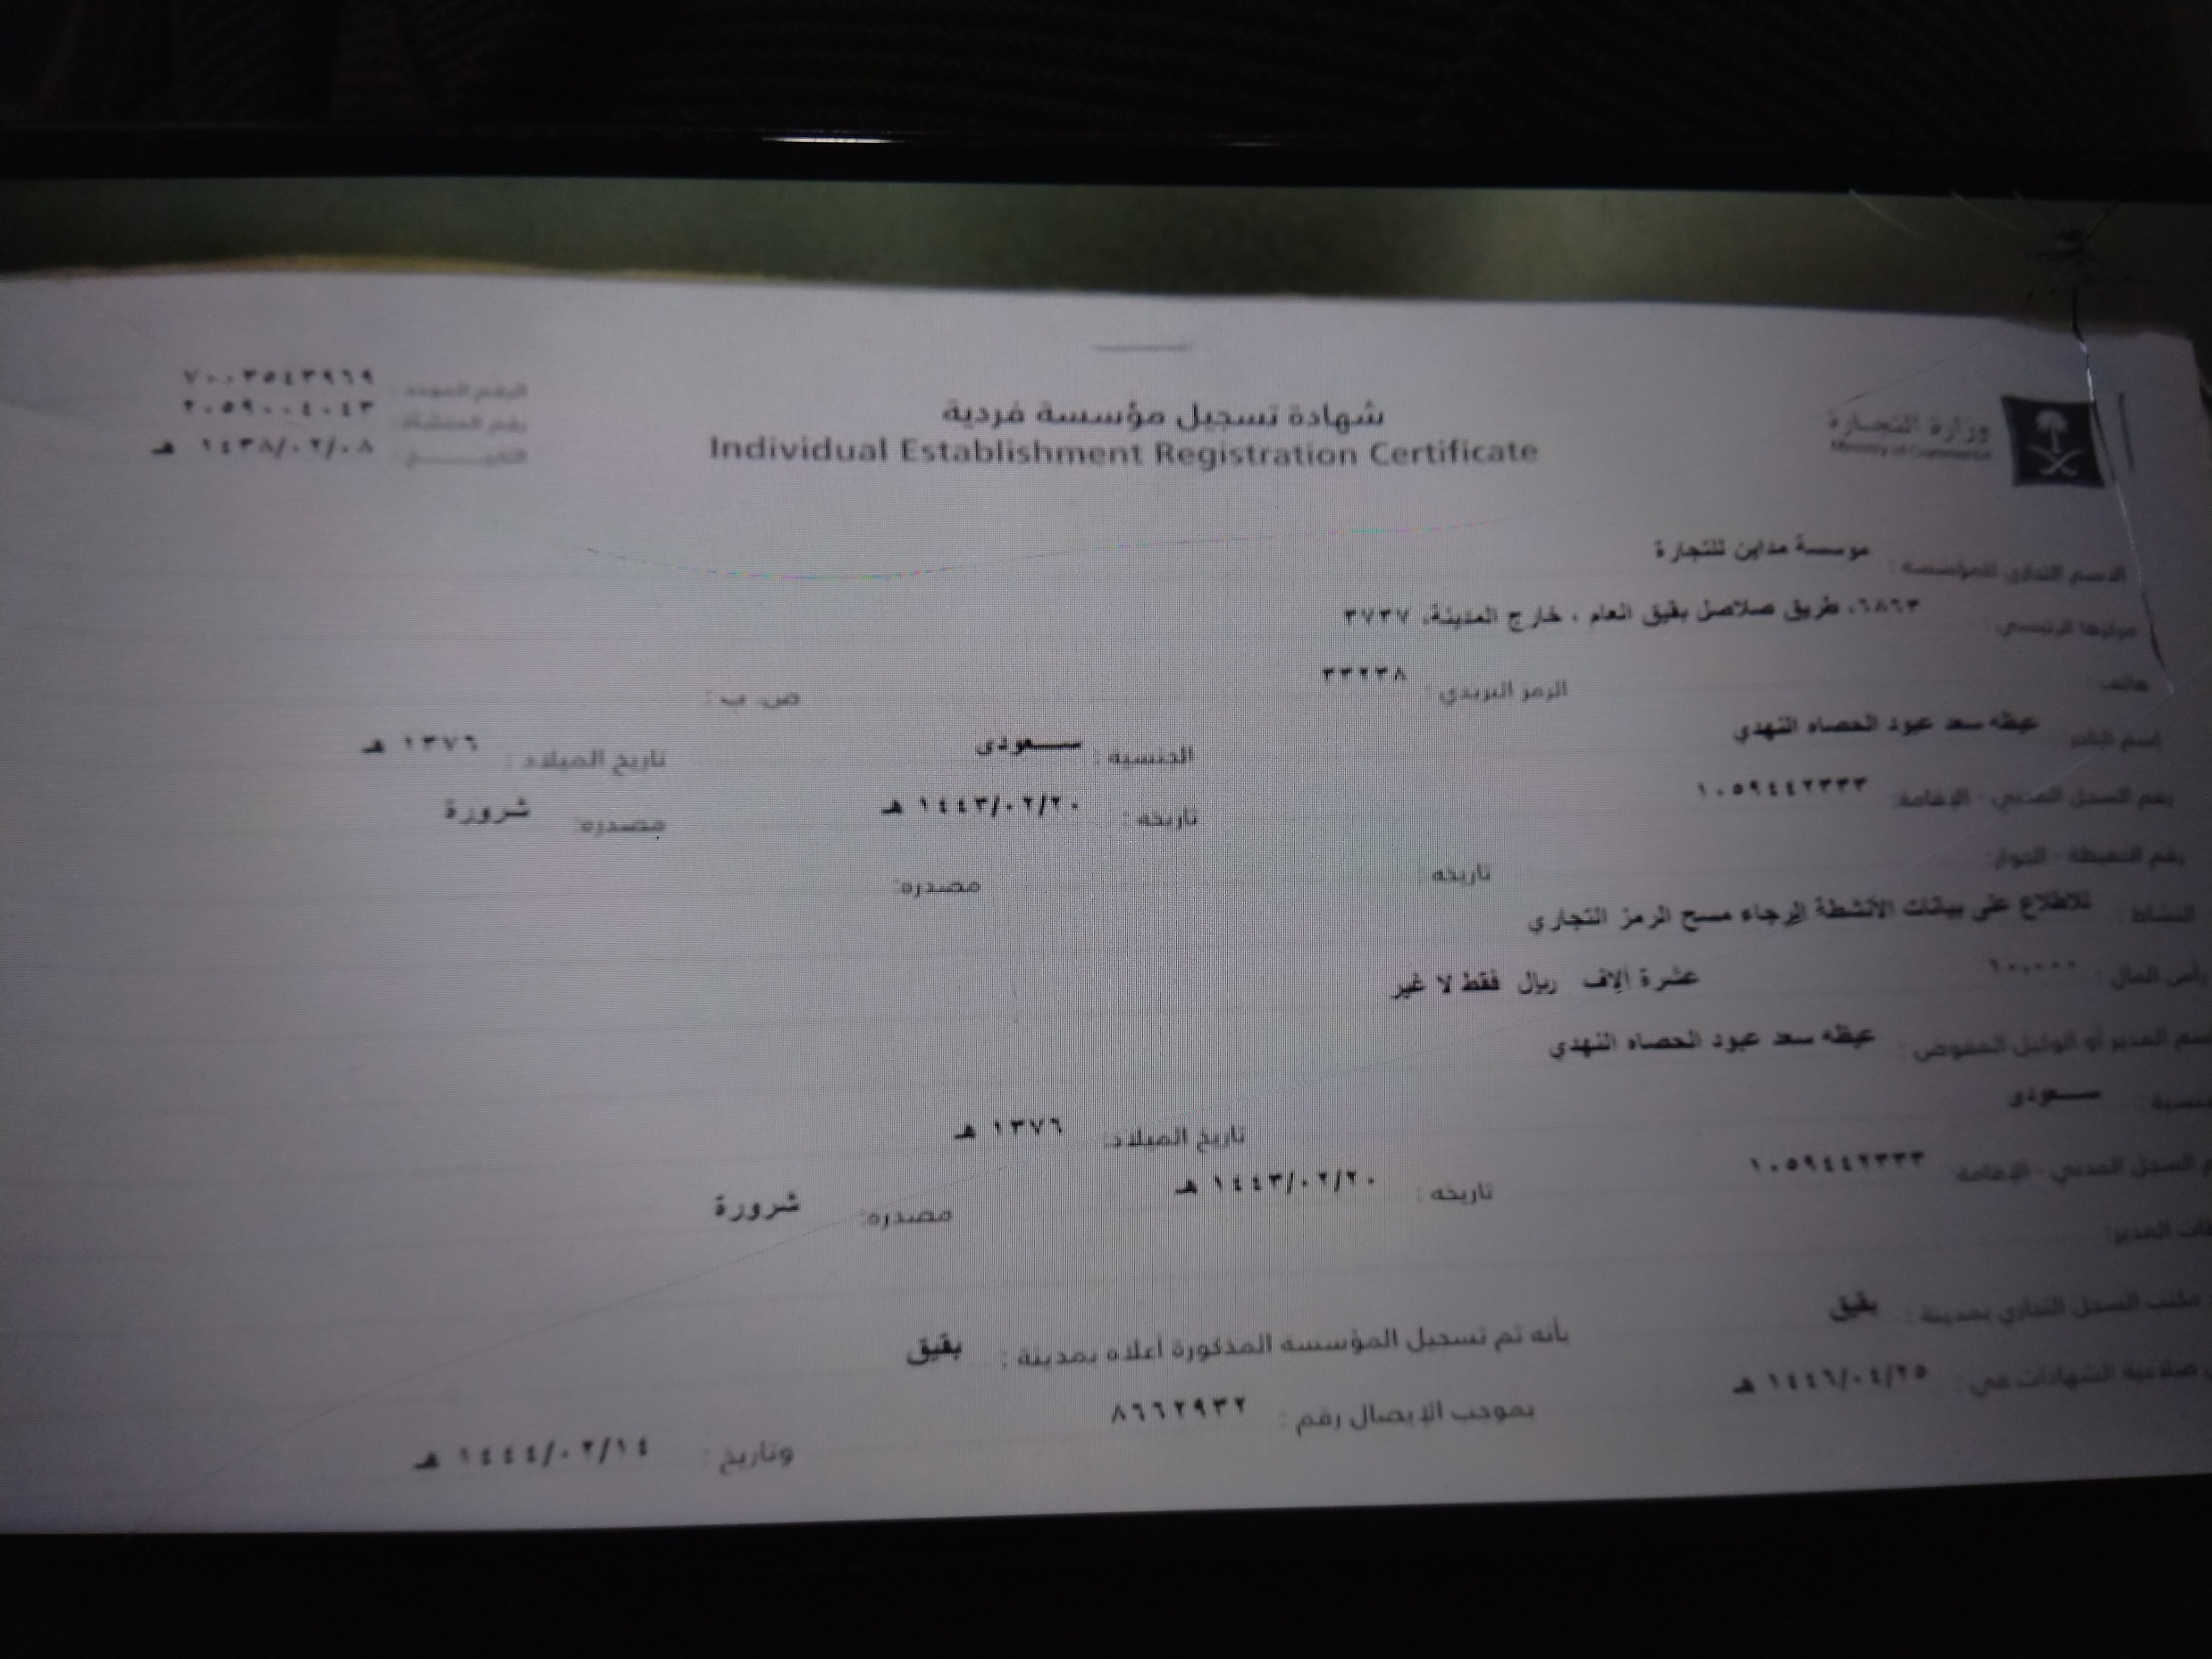 وزارة التجارة
Ministry of Commerce
شهادة تسجيل مؤسسة فردية
Individual Establishment Registration Certificate
الرقم الموحد : ٧٠٠٣٥٤٣٩٦٩
رقم المنشأة : ٢٠٥٩٠٠٤٠٤٣
التاريــــخ : ١٤٣٨/٠٢/٠٨ هـ
الاسم التجاري للمؤسسة : موسسة مداين للتجارة
مركزها الرئيسي : ٦٨٦٣، طريق صلاصل بقيق العام ، خارج المدينة، ٣٧٣٧
هاتف الرمز البريدي : ٣٣٢٣٨ ص. ب :
اسم التاجر عيظه سعد عبود الحصاه النهدي الجنسية : سعودى تاريخ الميلاد : ١٣٧٦ هـ
رقم السجل المدني - الإقامة: ١٠٥٩٤٤٢٣٣٣ تاريخه : ١٤٤٣/٠٢/٢٠ هـ مصدره: شرورة
رقم الحفيظة - الجواز تاريخه : مصدره:
النشاط : للاطلاع على بيانات الأنشطة الرجاء مسح الرمز التجاري
رأس المال : ١٠,٠٠٠ عشرة آلاف ريال فقط لا غير
اسم المدير أو الوكيل المفوض : عيظه سعد عبود الحصاه النهدي
سعودى تاريخ الميلاد: ١٣٧٦ هـ
السجل المدني - الإقامة: ١٠٥٩٤٤٢٣٣٣ تاريخه : ١٤٤٣/٠٢/٢٠ هـ مصدره: شرورة
المدير:
مكتب السجل التجاري بمدينة : بقيق بأنه تم تسجيل المؤسسة المذكورة أعلاه بمدينة : بقيق
صلاحية الشهادات في : ١٤٤٦/٠٤/٢٥ هـ بموجب الإيصال رقم : ٨٦٦٢٩٣٢ وتاريخ : ١٤٤٤/٠٢/١٤ هـ